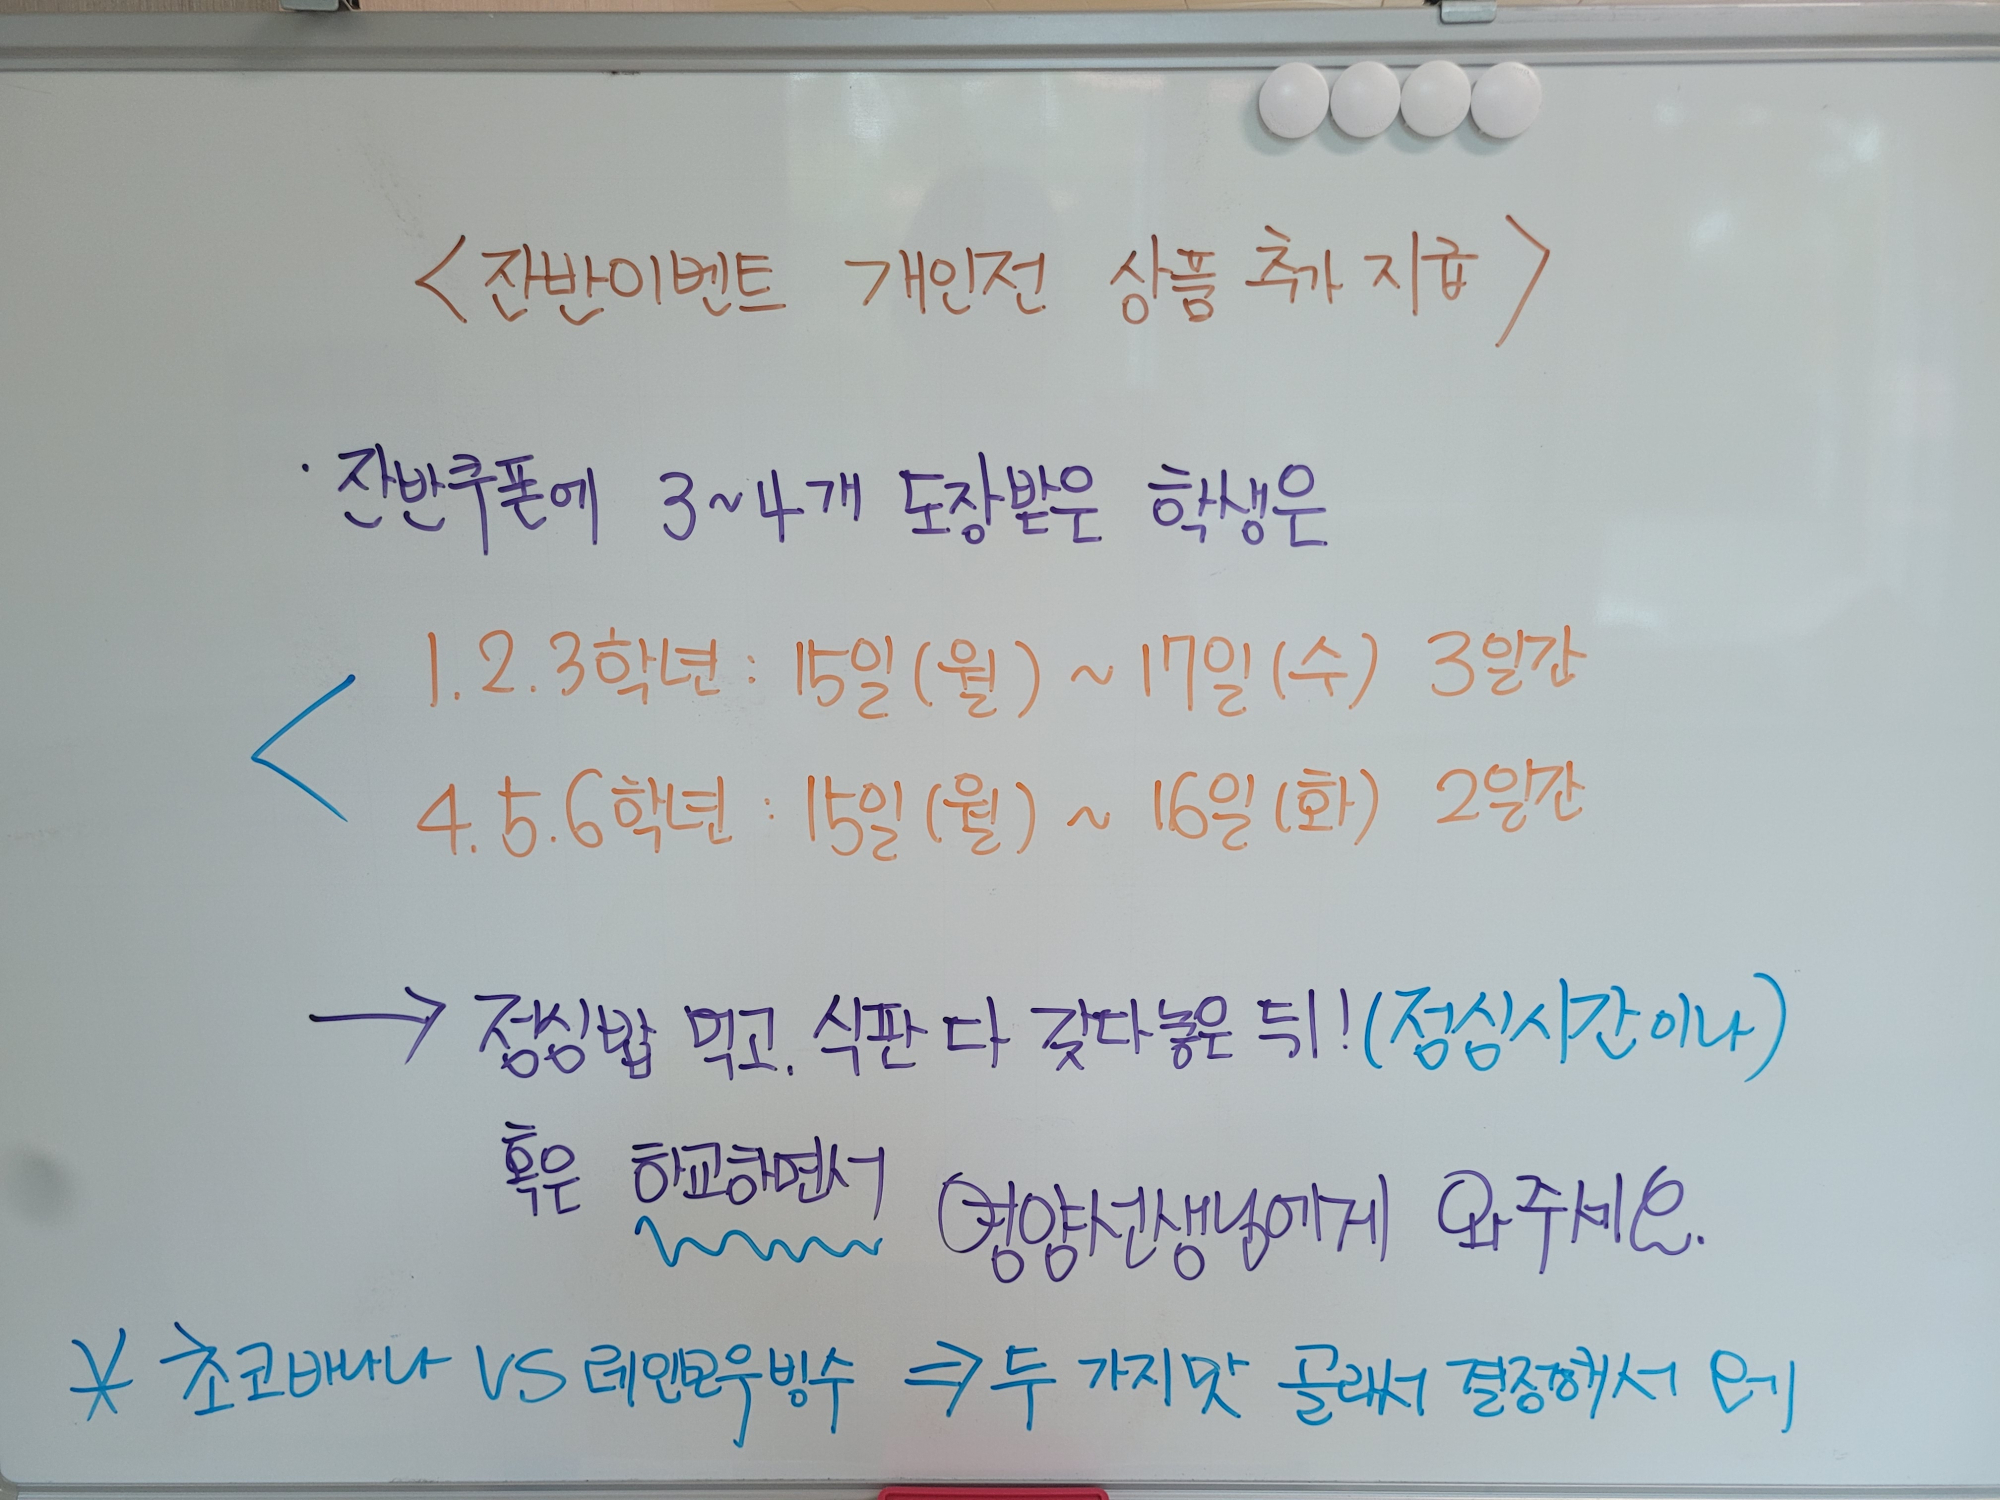 <잔반이벤트 개인전 상품 추가 지급>
· 잔반쿠폰에 3~4개 도장받은 학생은
1.2.3학년 : 15일(월) ~ 17일(수) 3일간
4.5.6학년 : 15일(월) ~ 16일(화) 2일간
→ 점심밥 먹고. 식판 다 갖다놓은 뒤! (점심시간이나)
혹은 하교하면서 영양선생님에게 와주세요.
* 초코바나나 VS 레인보우빙수 ⇒ 두 가지맛 골라서 결정해서 오기